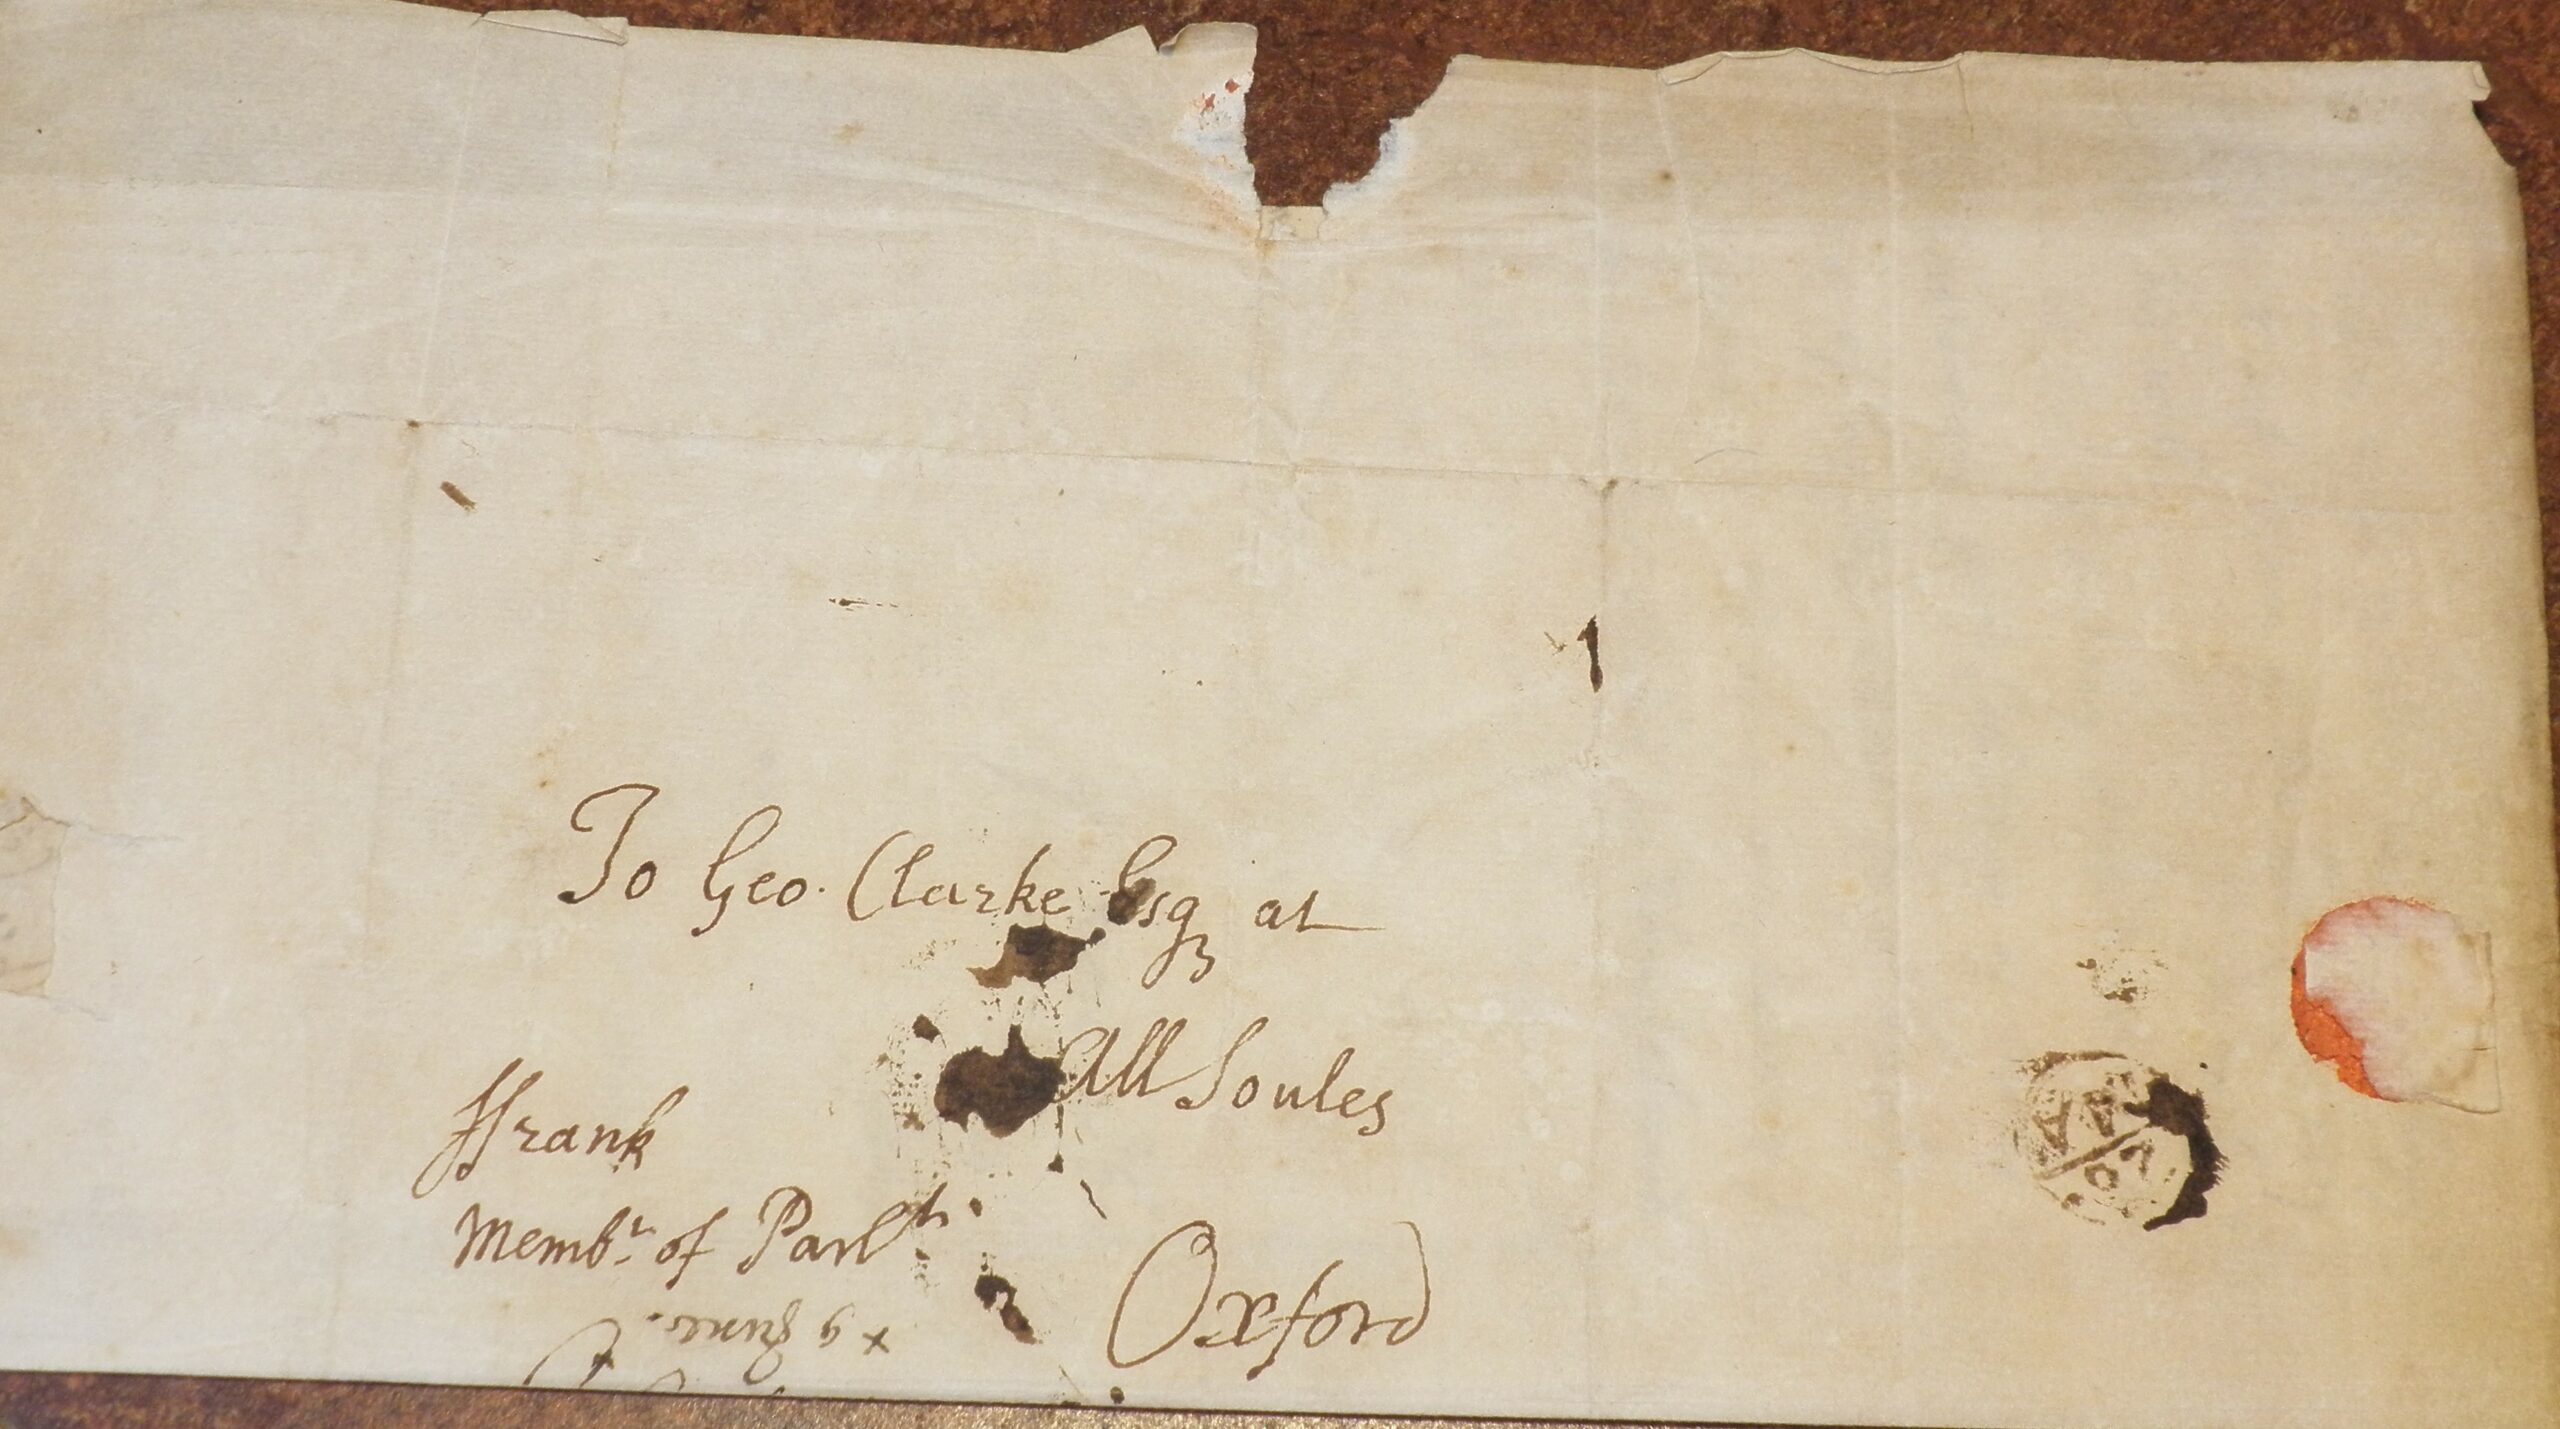 To Geo. Clarke Esq at
All Soules
ffrank
Membr. of Parlt.
Oxford
x 9 June.